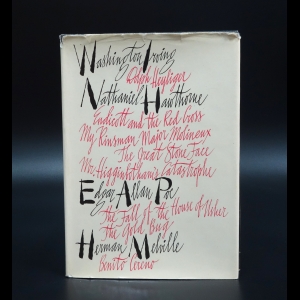 Washington Irving
Dolph Heyliger
Nathaniel Hawthorne
Endicott and the Red Cross
My Kinsman Major Molineux
The Great Stone Face
Mr. Higginbotham's Catastrophe
Edgar Allan Poe
The Fall of the House of Usher
The Gold Bug
Herman Melville
Benito Cereno